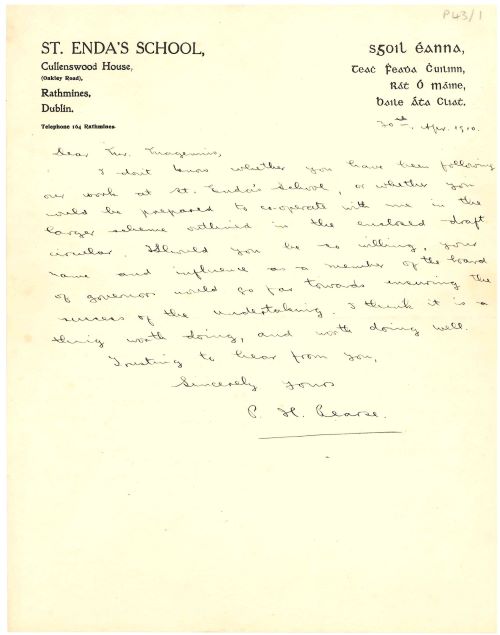 P43/1
ST. ENDA'S SCHOOL,
Cullenswood House,
(Oakley Road),
Rathmines,
Dublin.
Telephone 164 Rathmines.
sgoil éanna,
Teaċ Feaḋa Ċuilinn,
Ráṫ Ó Máine,
Baile Áṫa Cliaṫ.
30st. Apr. 1910.
Dear Mr. Magennis,
I don't know whether you have been following
our work at St. Enda's School, or whether you
would be prepared to co-operate with me in the
larger scheme outlined in the enclosed draft
circular. Should you be so willing, your
name and influence as a member of the board
of governors would go far towards ensuring the
success of the undertaking. I think it is a
thing worth doing, and worth doing well.
Trusting to hear from you,
Sincerely yours
P. H. Pearse.